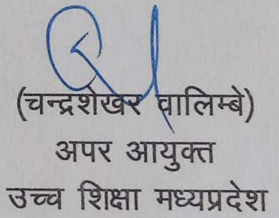 (चन्द्रशेखर वालिम्बे)
अपर आयुक्त
उच्च शिक्षा मध्यप्रदेश